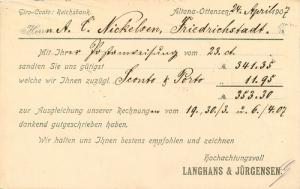 Giro-Conto: Reichsbank. Altona-Ottensen, 24. April 1907
Herrn A. C. Nickelsen, Friedrichstadt.
Mit Ihrer Postanweisung vom 23. ct.
sandten Sie uns gütigst M 341.35
welche wir Ihnen zuzügl. Sconto & Porto „ 11.95
M 353.30
zur Ausgleichung unserer Rechnungen vom 19., 30./3. u. 6./4.07
dankend gutgeschrieben haben.
Wir halten uns Ihnen bestens empfohlen und zeichnen
Hochachtungsvoll
LANGHANS & JÜRGENSEN.